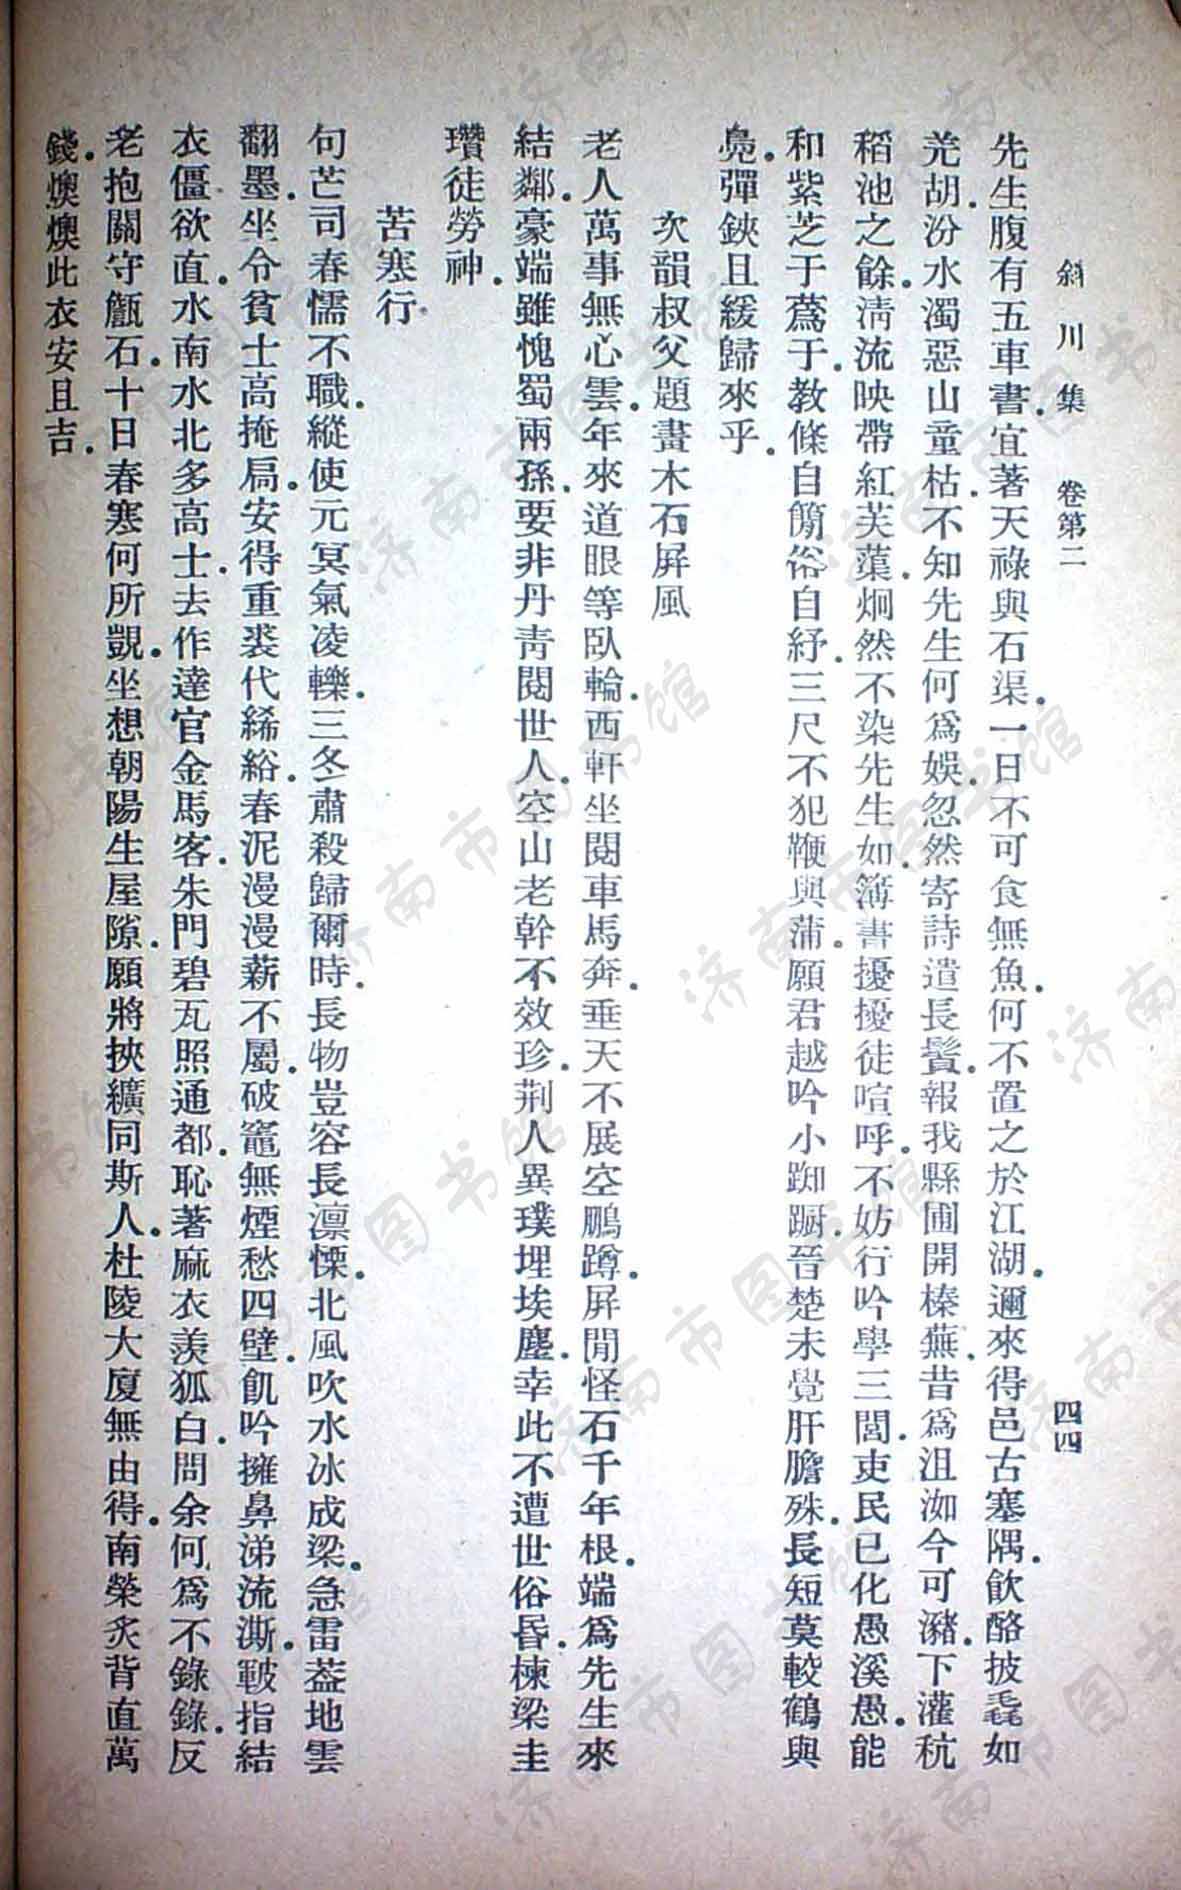 斜川集　卷第二　四四
先生腹有五車書．宜著天祿與石渠．一日不可食無魚．何不置之於江湖．邇來得邑古塞隅．飲酪披毳如
羌胡．汾水濁惡山童枯．不知先生何爲娛．忽然寄詩遣長鬚．報我縣圃開榛蕪．昔爲沮洳今可瀦．下灌秔
稻池之餘．淸流映帶紅芙蕖．炯然不染先生如．簿書擾擾徒喧呼．不妨行吟學三閭．吏民已化愚溪愚．能
和紫芝于蔿于．教條自簡俗自紓．三尺不犯鞭與蒲．願君越吟小踟躕．晉楚未覺肝膽殊．長短莫較鶴與
鳧．彈鋏且緩歸來乎．
次韻叔父題畫木石屏風
老人萬事無心雲．年來道眼等臥輪．西軒坐閱車馬奔．垂天不展空鵬蹲．屏間怪石千年根．端爲先生來
結鄰．豪端雖愧蜀兩孫．要非丹靑閱世人．空山老幹不效珍．荆人異璞埋埃塵．幸此不遭世俗昏．棟梁圭
瓚徒勞神．
苦寒行．
句芒司春懦不職．縱使元冥氣凌轢．三冬肅殺歸爾時．長物豈容長凛慄．北風吹水冰成梁．急雷葢地雲
翻墨．坐令貧士高掩扃．安得重裘代絺綌．春泥漫漫薪不屬．破竈無煙愁四壁．飢吟擁鼻涕流澌．皸指結
衣僵欲直．水南水北多高士．去作達官金馬客．朱門碧瓦照通都．恥著麻衣羨狐白．問余何爲不錄錄．反
老抱關守甔石．十日春寒何所覬．坐想朝陽生屋隙．願將挾纊同斯人．杜陵大廈無由得．南榮炙背直萬
錢．燠燠此衣安且吉．
济南市图书馆